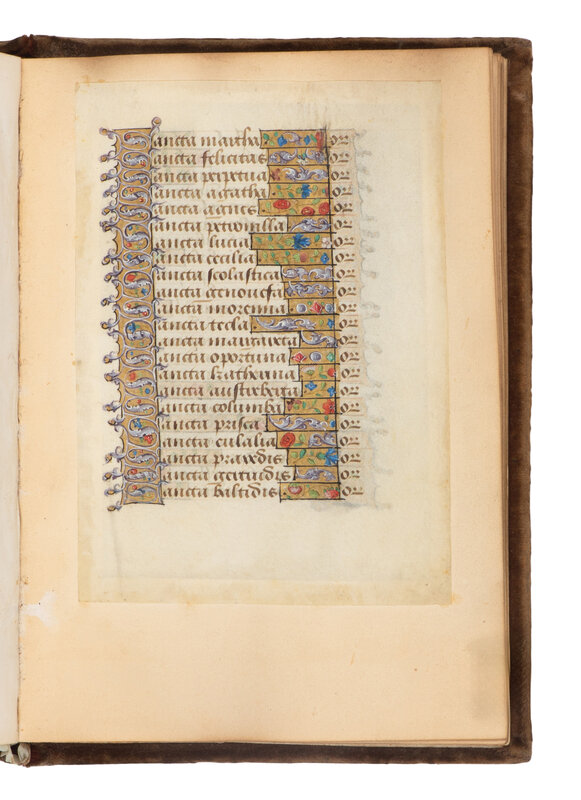 Sancta martha or
Sancta felicitas or
Sancta perpetua or
Sancta agatha or
Sancta agnes or
Sancta petronilla or
Sancta lucia or
Sancta cecilia or
Sancta scolastica or
Sancta genouefa or
Sancta morenna or
Sancta tecla or
Sancta margareta or
Sancta oportuna or
Sancta katherina or
Sancta austreberta or
Sancta columba or
Sancta prisca or
Sancta eulalia or
Sancta praxedis or
Sancta gertrudis or
Sancta baltidis or